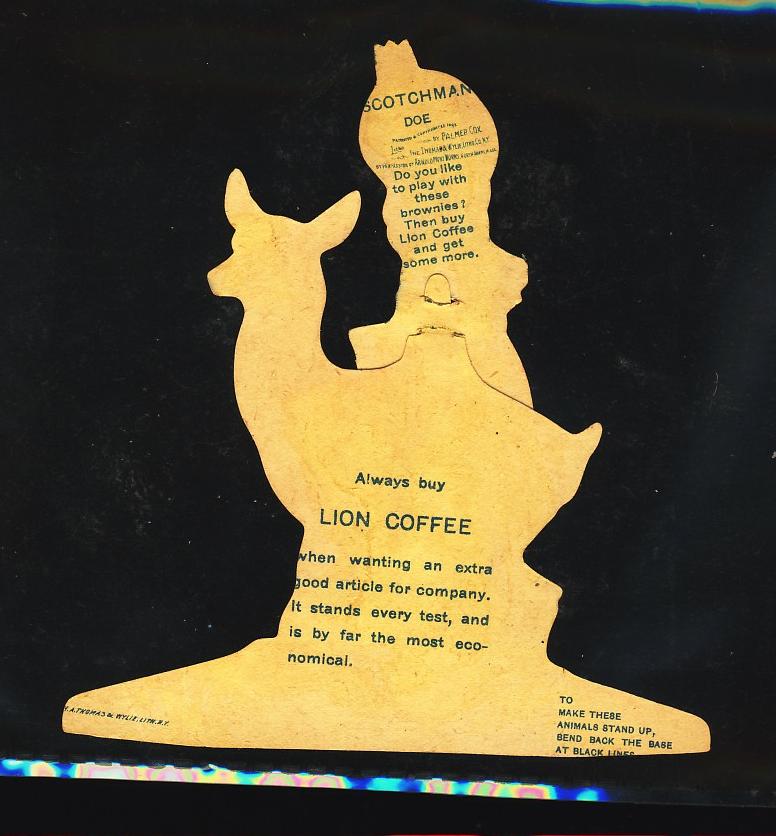 SCOTCHMAN
DOE
BY PALMER COX
THE THOMAS & WYLIE LITHO. CO. N.Y.
BY PERMISSION OF ARNOLD PRINT WORKS, NORTH ADAMS, MASS.
Do you like
to play with
these
brownies?
Then buy
Lion Coffee
and get
some more.
Always buy
LION COFFEE
when wanting an extra
good article for company.
It stands every test, and
is by far the most eco-
nomical.
TO
MAKE THESE
ANIMALS STAND UP,
BEND BACK THE BASE
AT BLACK LINES
A. THOMAS & WYLIE, LITH. N.Y.